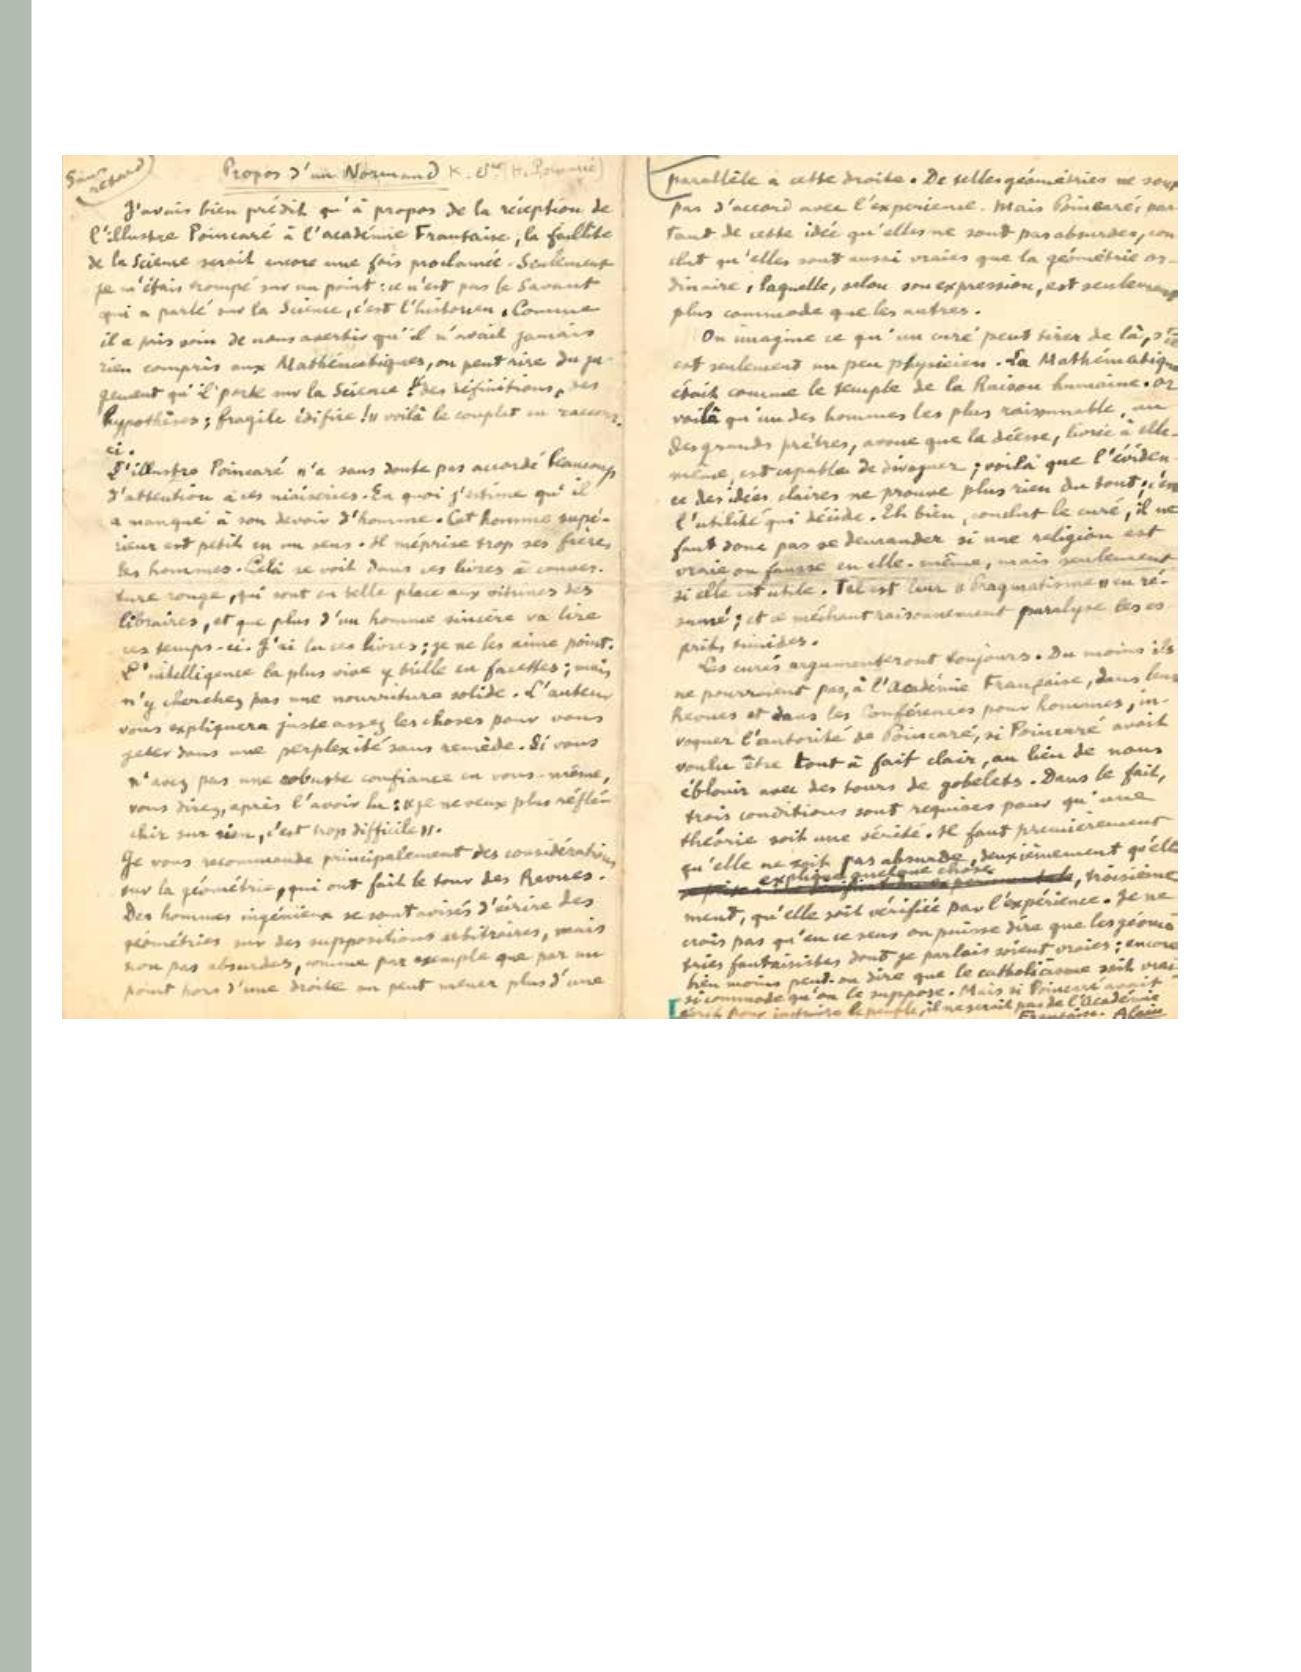 Sans
retard
Propos d'un Normand (H. Poincaré)
J'avais bien prédit qu'à propos de la réception de
l'illustre Poincaré à l'académie Française, la faillite
de la Science serait encore une fois proclamée. Seulement
je m'étais trompé sur un point : ce n'est pas le Savant
qui a parlé sur la Science, c'est l'historien. Comme
il a pris soin de nous avertir qu'il n'avait jamais
rien compris aux Mathématiques, on peut rire du ju-
gement qu'il porte sur la Science « des définitions, des
hypothèses ; fragile édifice ! » voilà le couplet en raccour-
ci.
L'illustre Poincaré n'a sans doute pas accordé beaucoup
d'attention à ces niaiseries. En quoi j'estime qu'il
a manqué à son devoir d'homme. Cet homme supé-
rieur est petit en un sens. Il méprise trop ses frères
les hommes. Celà se voit dans ces livres à couver-
ture rouge, qui sont en belle place aux vitrines des
libraires, et que plus d'un homme sincère va lire
ces temps-ci. J'ai lu ces livres ; je ne les aime point.
L'intelligence la plus vive y brille en facettes ; mais
n'y cherchez pas une nourriture solide. L'auteur
vous expliquera juste assez les choses pour vous
jeter dans une perplexité sans remède. Si vous
n'avez pas une robuste confiance en vous-même,
vous direz, après l'avoir lu : « je ne veux plus réflé-
chir sur rien, c'est trop difficile ».
Je vous recommande principalement des considérations
sur la géométrie, qui ont fait le tour des Revues.
Des hommes ingénieux se sont avisés d'écrire des
géométries sur des suppositions arbitraires, mais
non pas absurdes, comme par exemple que par un
point hors d'une droite on peut mener plus d'une
parallèle à cette droite. De telles géométries ne sont
pas d'accord avec l'expérience. Mais Poincaré, par-
tant de cette idée qu'elles ne sont pas absurdes, con-
clut qu'elles sont aussi vraies que la géométrie or-
dinaire, laquelle, selon son expression, est seulement
plus commode que les autres.
On imagine ce qu'un curé peut tirer de là, s'il
est seulement un peu physicien. La Mathématique
était comme le temple de la Raison humaine. or
voilà qu'un des hommes les plus raisonnable, un
des grands prêtres, avoue que la déesse, livrée à elle-
même, est capable de divaguer ; voilà que l'éviden-
ce des idées claires ne prouve plus rien du tout ; c'est
l'utilité qui décide. Eh bien, conclut le curé, il ne
faut donc pas se demander si une religion est
vraie ou fausse en elle-même, mais seulement
si elle est utile. Tel est leur « Pragmatisme » en ré-
sumé ; et ce méchant raisonnement paralyse les es
prits timides.
Les curés argumenteront toujours. Du moins ils
ne pourraient pas, à l'Académie Française, dans leurs
Revues et dans les Conférences pour hommes, in-
voquer l'autorité de Poincaré, si Poincaré avait
voulu être tout à fait clair, au lieu de nous
éblouir avec des tours de gobelets. Dans le fait,
trois conditions sont requises pour qu'une
théorie soit une vérité. Il faut premièrement
qu'elle ne soit pas absurde, deuxièmement qu'elle
explique quelque chose
, troisième
ment, qu'elle soit vérifiée par l'expérience. Je ne
crois pas qu'en ce sens on puisse dire que les géomé
tries fantaisistes dont je parlais soient vraies ; encore
bien moins peut-on dire que le catholicisme soit vrai
si commode qu'on le suppose. Mais si Poincaré avait
écrit pour instruire le peuple, il ne serait pas de l'Académie
Française. Alain